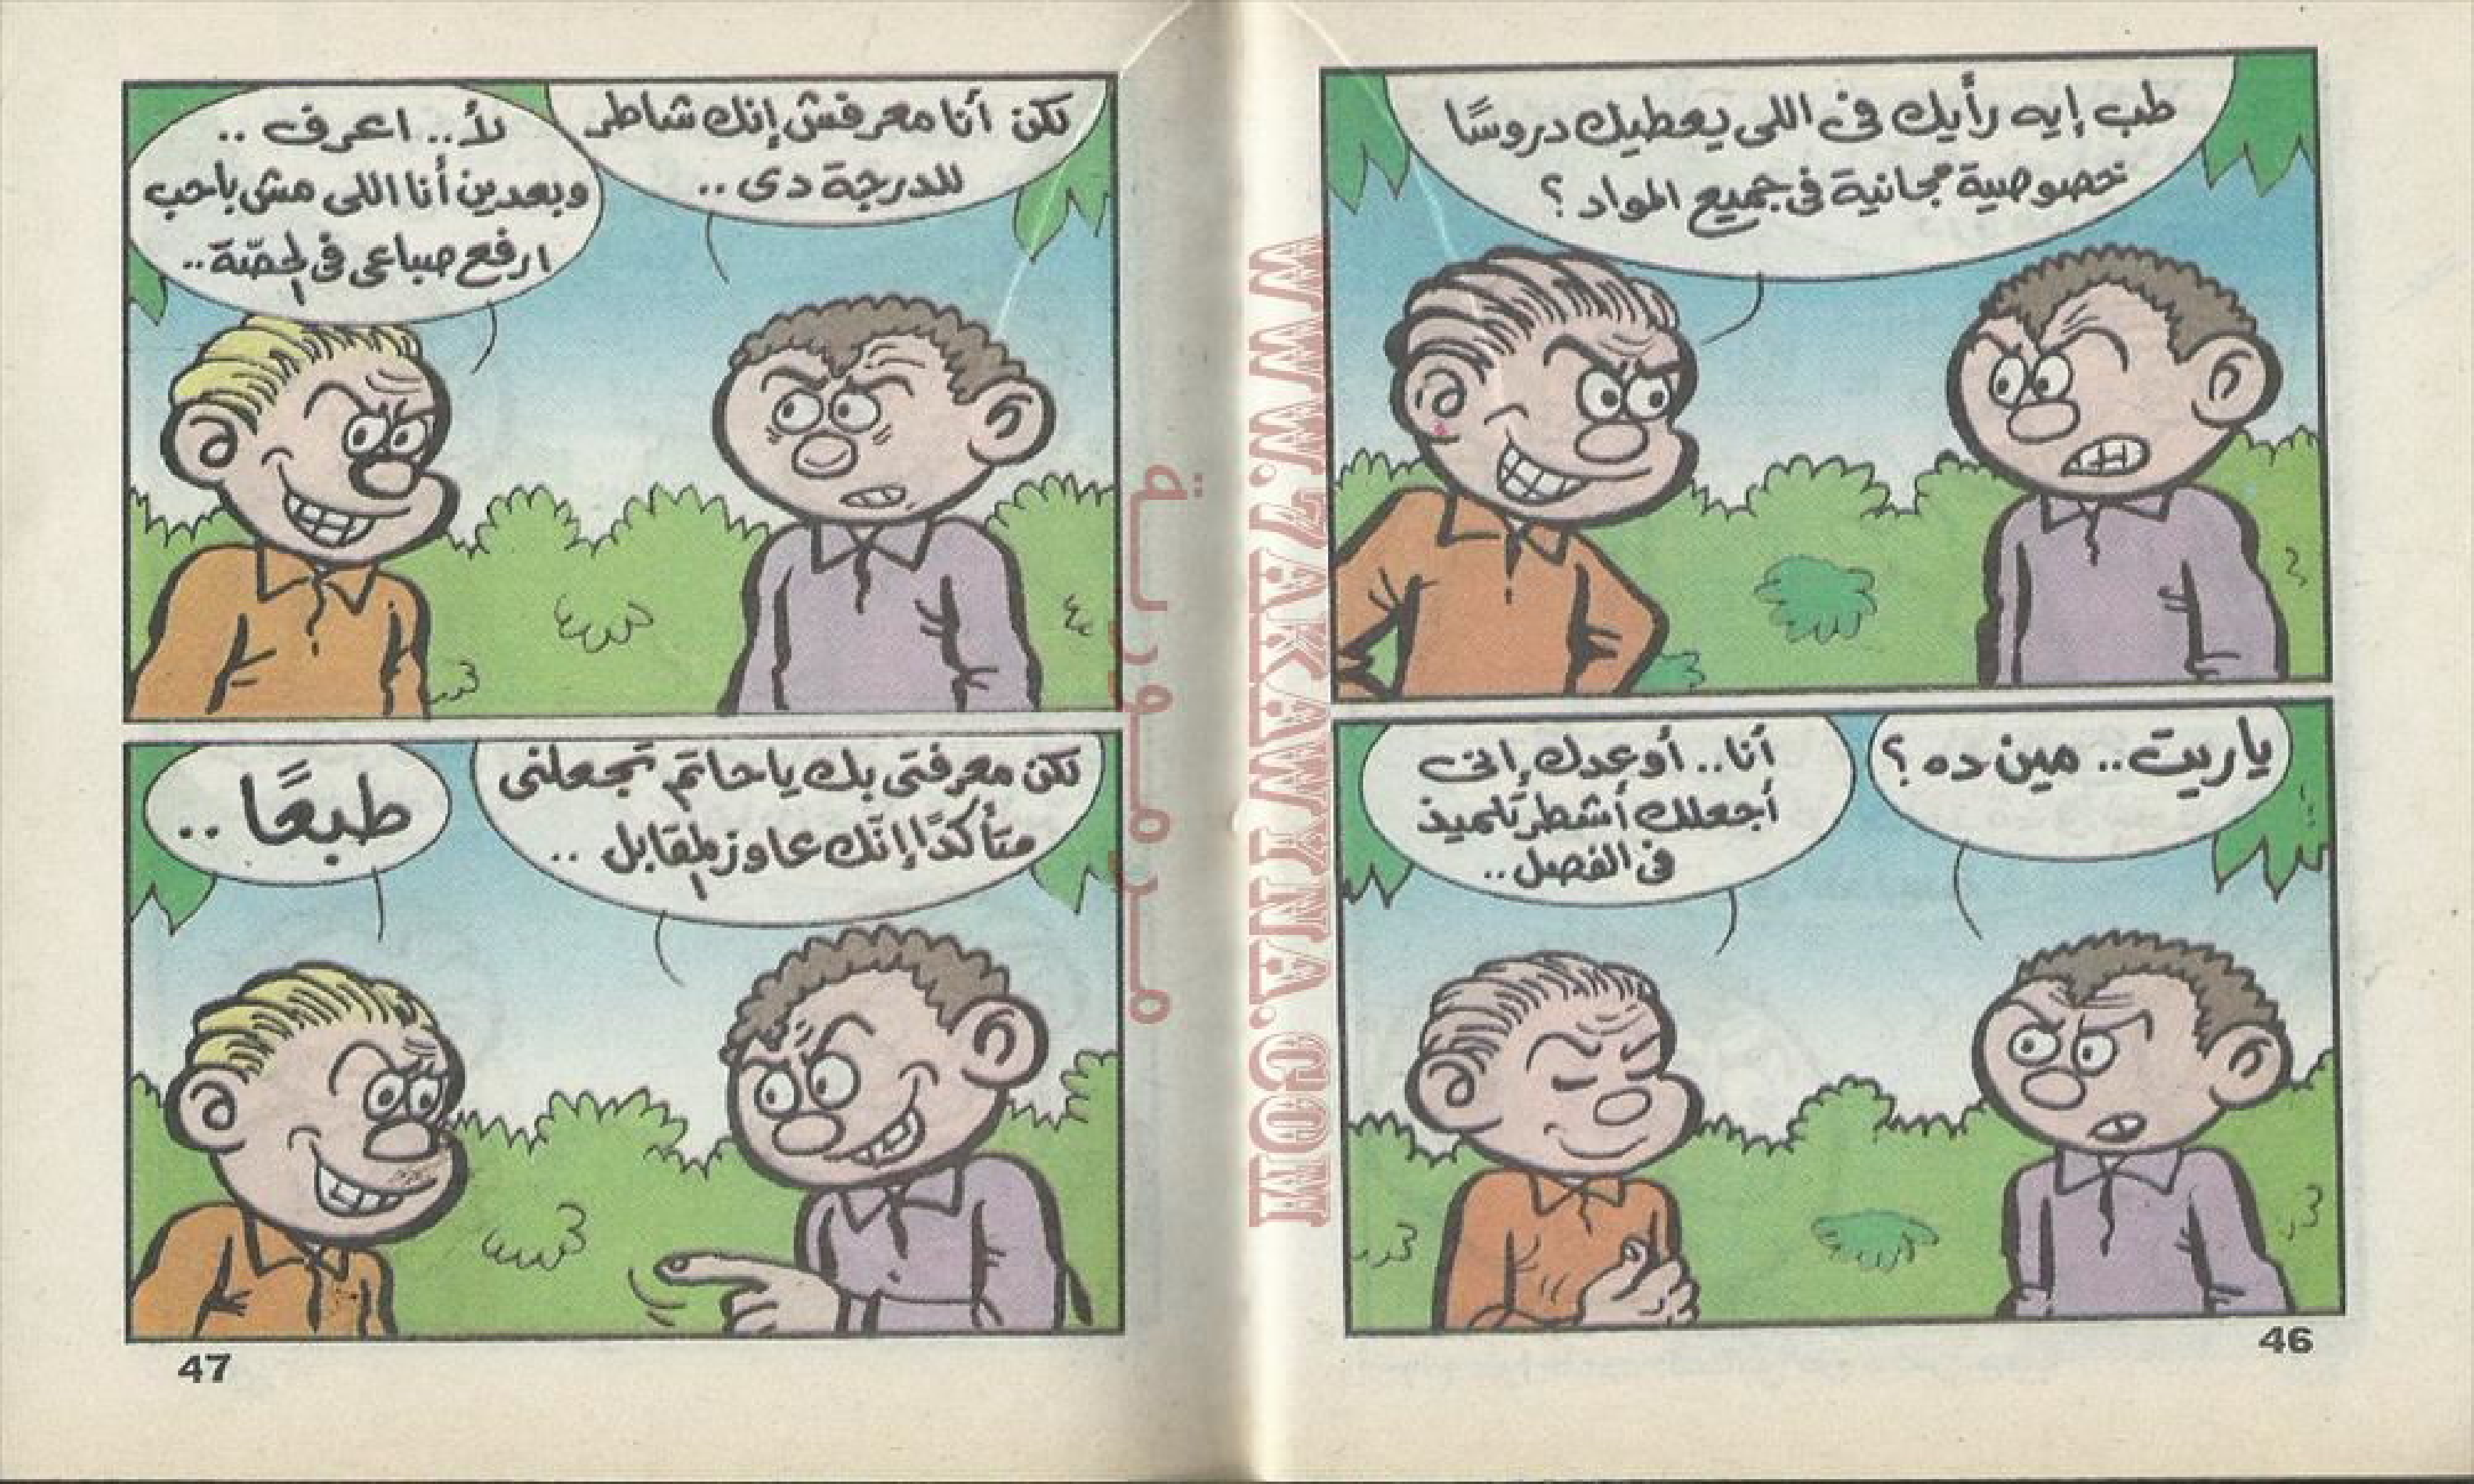 طب إيه رأيك فى اللى يعطيك دروسًا
خصوصية مجانية فى جميع المواد؟
ياريت.. مين ده؟
أنا.. أوعدك إنى
أجعلك أشطر تلميذ
فى الفصل..
46
لكن أنا معرفش إنك شاطر
للدرجة دى..
لأ.. اعرف..
وبعدين أنا اللى مش باحب
ارفع صباعى فى الحصّة..
لكن معرفتى بك يا حاتم تجعلنى
متأكدًا إنّك عاوز المقابل..
طبعًا..
47
مدمورية